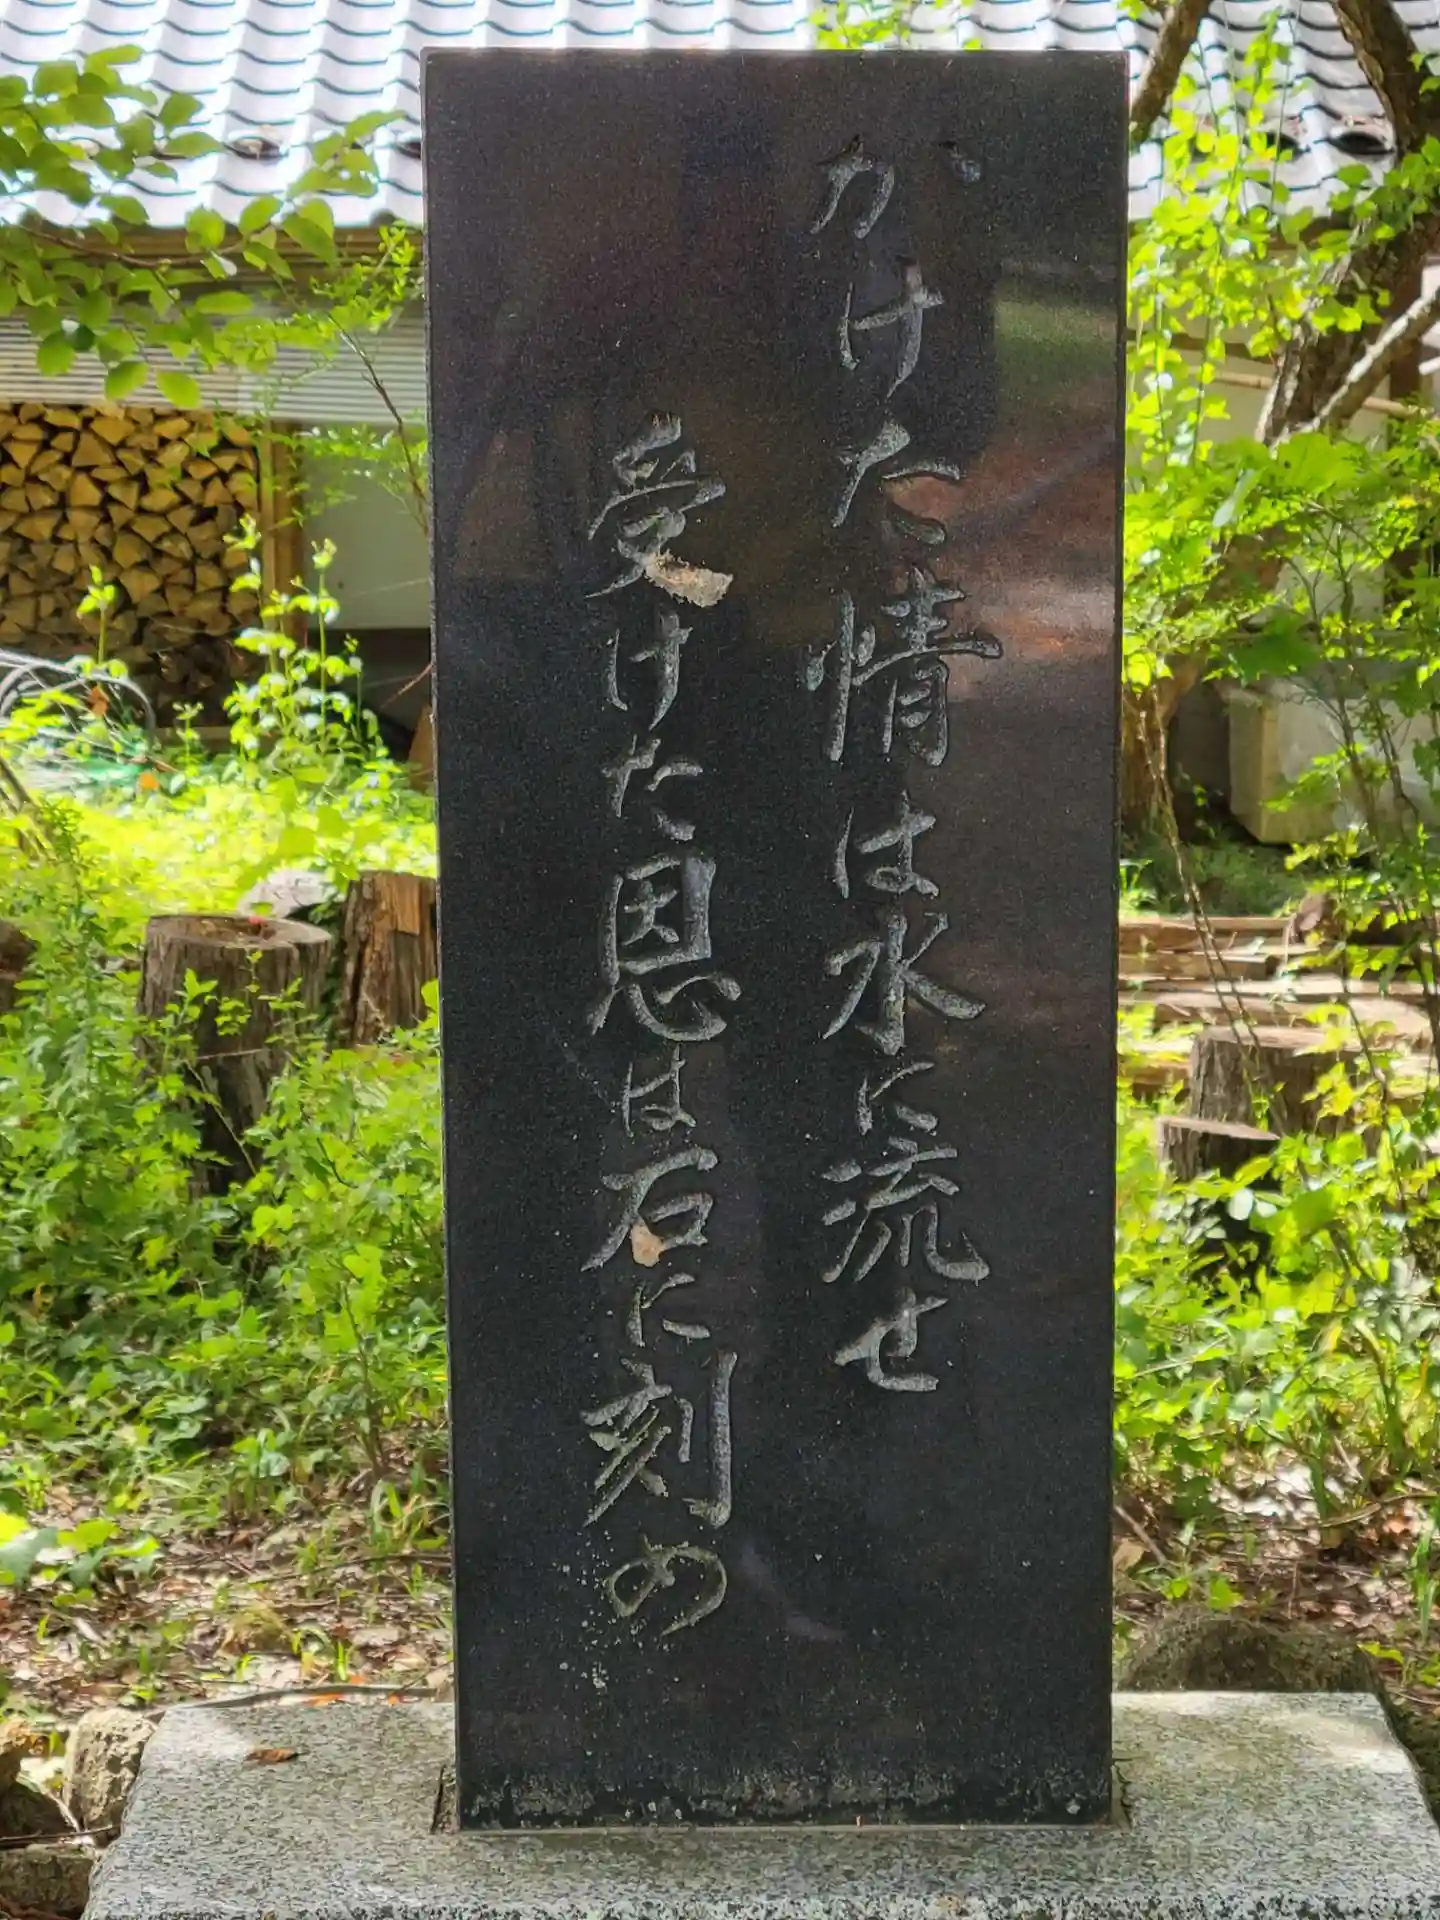 かけた情は水に流せ
受けた恩は石に刻め